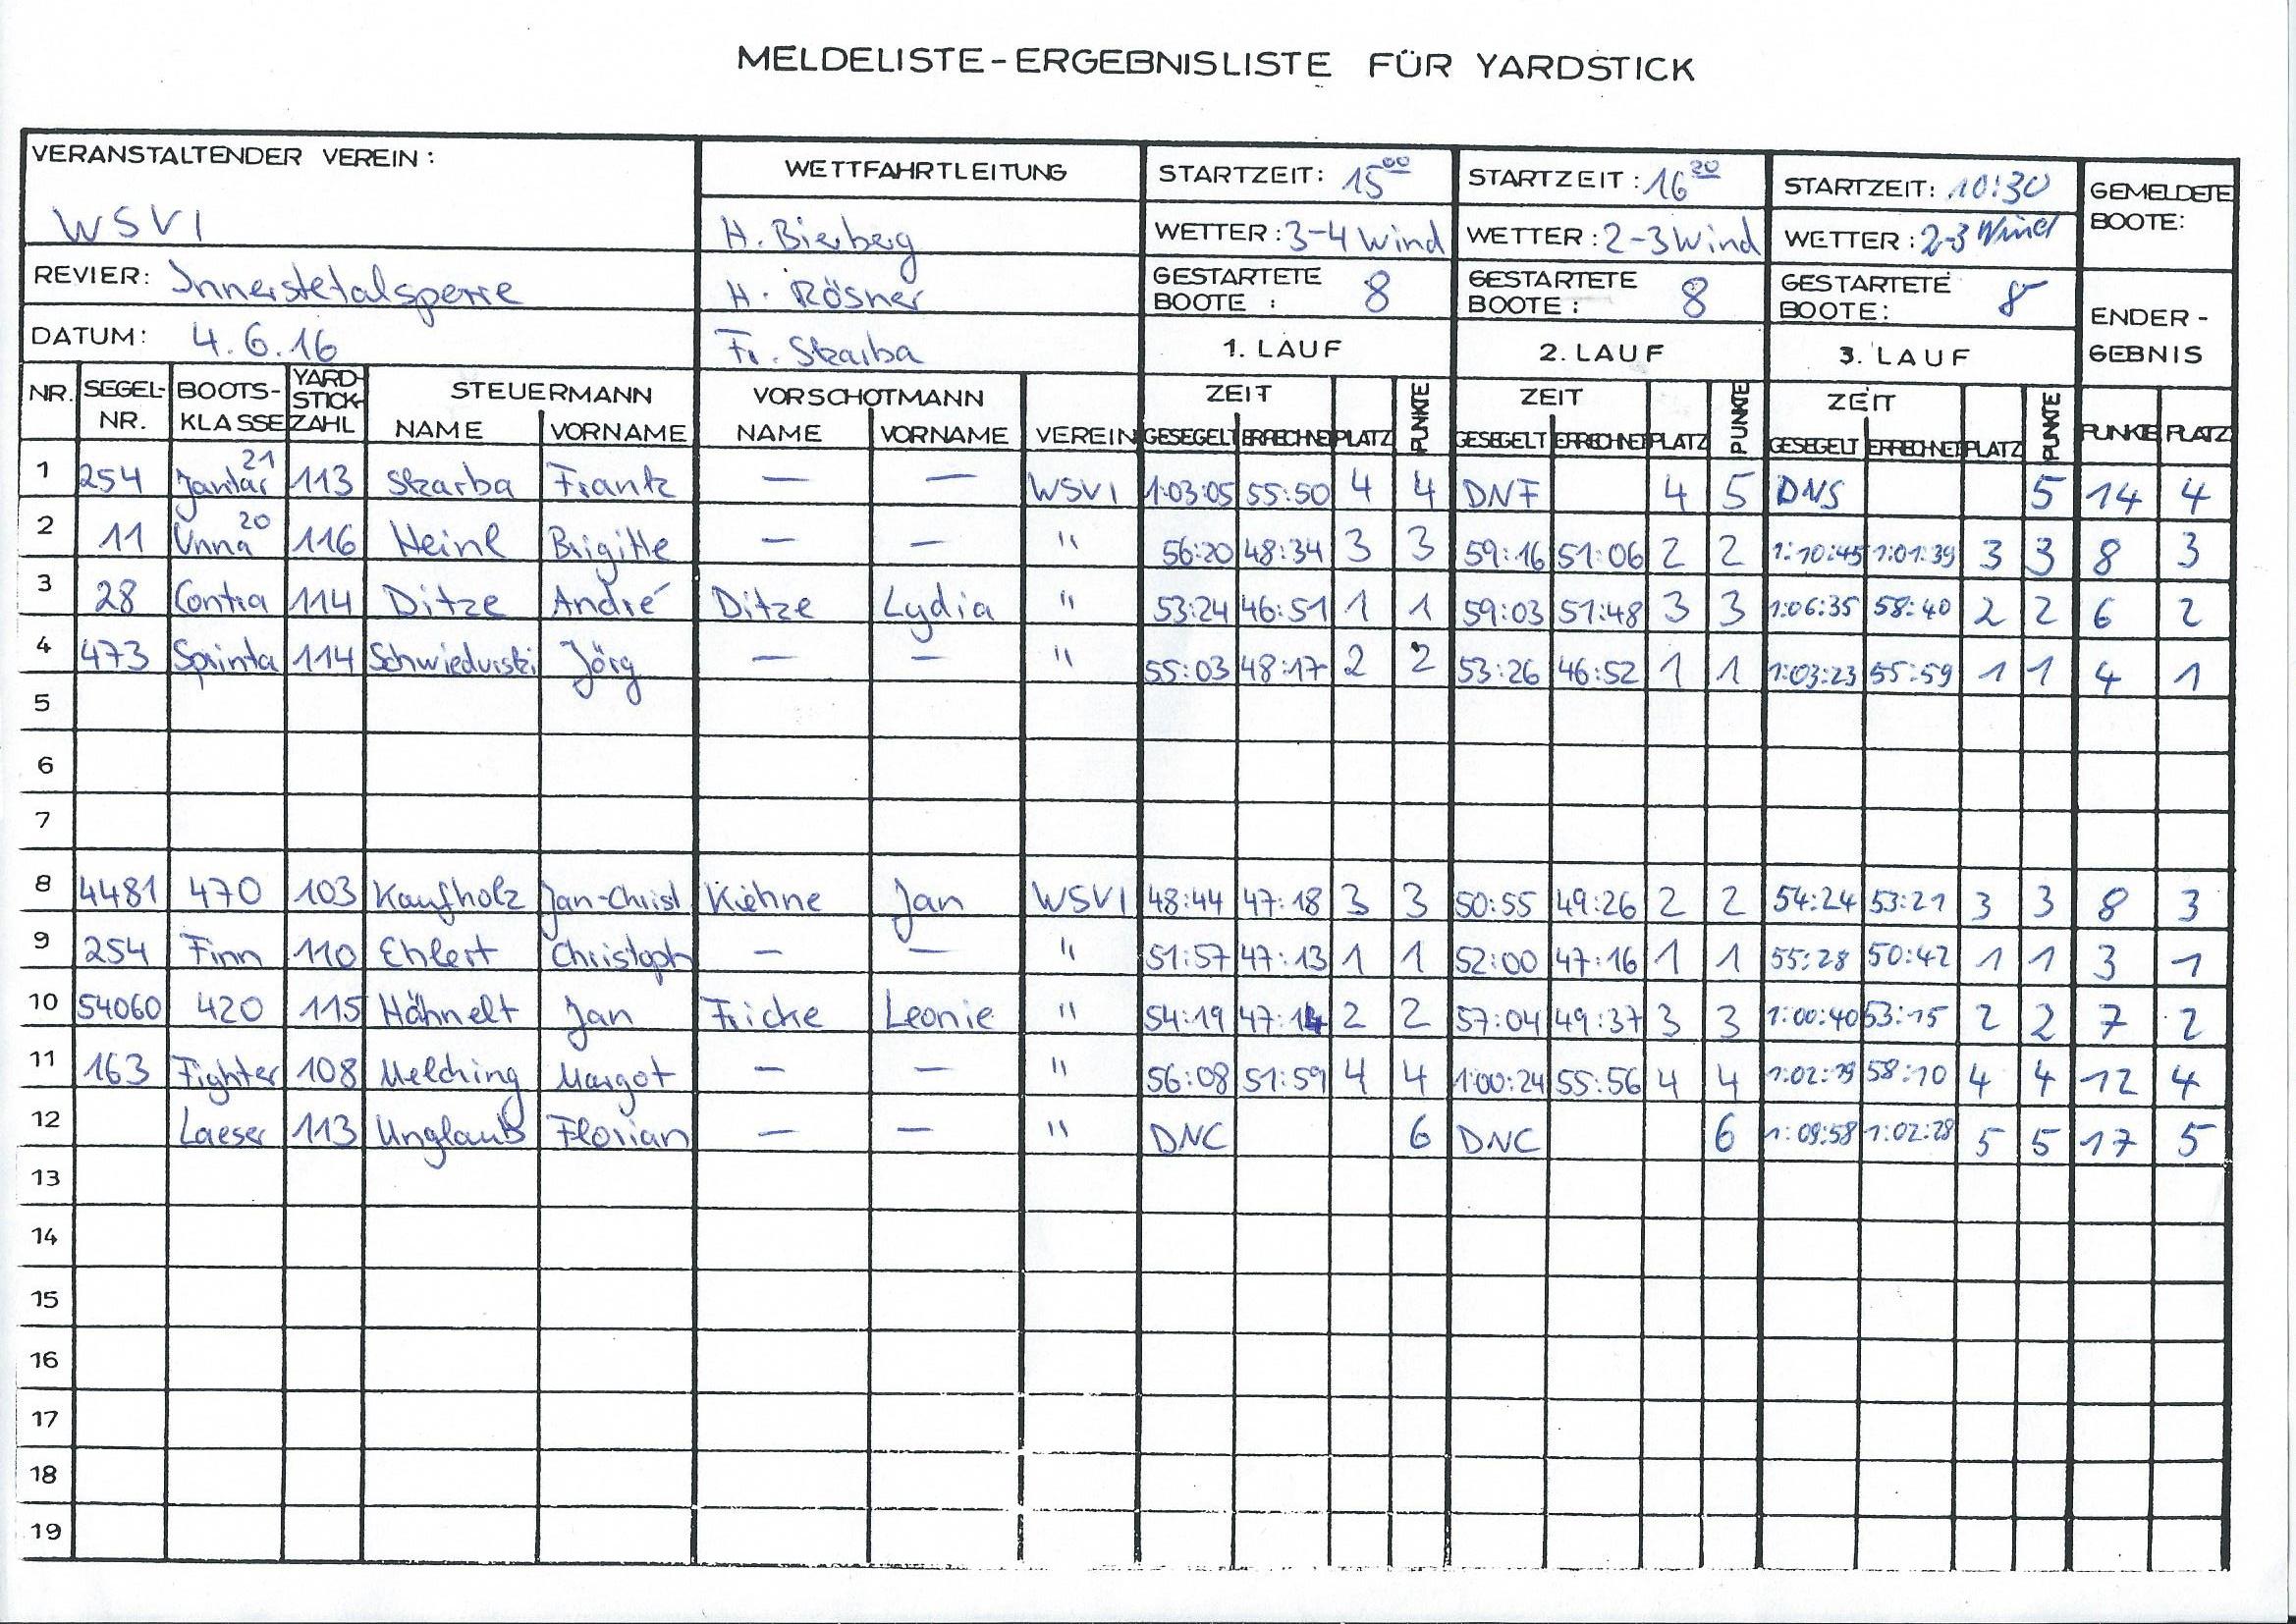 MELDELISTE-ERGEBNISLISTE FÜR YARDSTICK
VERANSTALTENDER VEREIN: WETTFAHRTLEITUNG STARTZEIT: 15 00 STARTZEIT: 16 20 STARTZEIT: 10:30 GEMELDETE BOOTE:
WSVI H. Bierberg WETTER: 3-4 Wind WETTER: 2-3 Wind WETTER: 2-3 Wind
REVIER: Innerstetalsperre H. Rösner GESTARTETE BOOTE: 8 GESTARTETE BOOTE: 8 GESTARTETE BOOTE: 8
DATUM: 4.6.16 Fr. Skarba 1. LAUF 2. LAUF 3. LAUF ENDERGEBNIS
NR. SEGEL-NR. BOOTS-KLASSE YARD-STICK-ZAHL STEUERMANN VORSCHOTMANN ZEIT PUNKTE ZEIT PUNKTE ZEIT PUNKTE
NAME VORNAME NAME VORNAME VEREIN GESEGELT ERRECHNET PLATZ GESEGELT ERRECHNET PLATZ GESEGELT ERRECHNET PLATZ PUNKTE PLATZ
1 254 Jantar 21 113 Skarba Frantz — — WSVI 1:03:05 55:50 4 4 DNF 4 5 DNS 5 14 4
2 11 Unna 20 116 Heinl Brigitte — — " 56:20 48:34 3 3 59:16 51:06 2 2 1:10:45 1:01:39 3 3 8 3
3 28 Contra 114 Ditze André Ditze Lydia " 53:24 46:51 1 1 59:03 51:48 3 3 1:06:35 58:40 2 2 6 2
4 473 Sprinta 114 Jörg — — " 55:03 48:17 2 2 53:26 46:52 1 1 1:03:23 55:59 1 1 4 1
5
6
7
8 4481 470 103 Kaufholz Jan-Christ Kiehne Jan WSVI 48:44 47:18 3 3 50:55 49:26 2 2 54:24 53:21 3 3 8 3
9 254 Finn 110 Ehlert Christoph — — " 51:57 47:13 1 1 52:00 47:16 1 1 55:28 50:42 1 1 3 1
10 54060 420 115 Hähnelt Jan Fricke Leonie " 54:19 47:14 2 2 57:04 49:37 3 3 1:00:40 53:15 2 2 7 2
11 163 Fighter 108 Melching Margot — — " 56:08 51:59 4 4 1:00:24 55:56 4 4 58:10 4 4 12 4
12 Laeser 113 Unglaub Florian — — " DNC 6 DNC 6 1:09:58 1:02:28 5 5 17 5
13
14
15
16
17
18
19